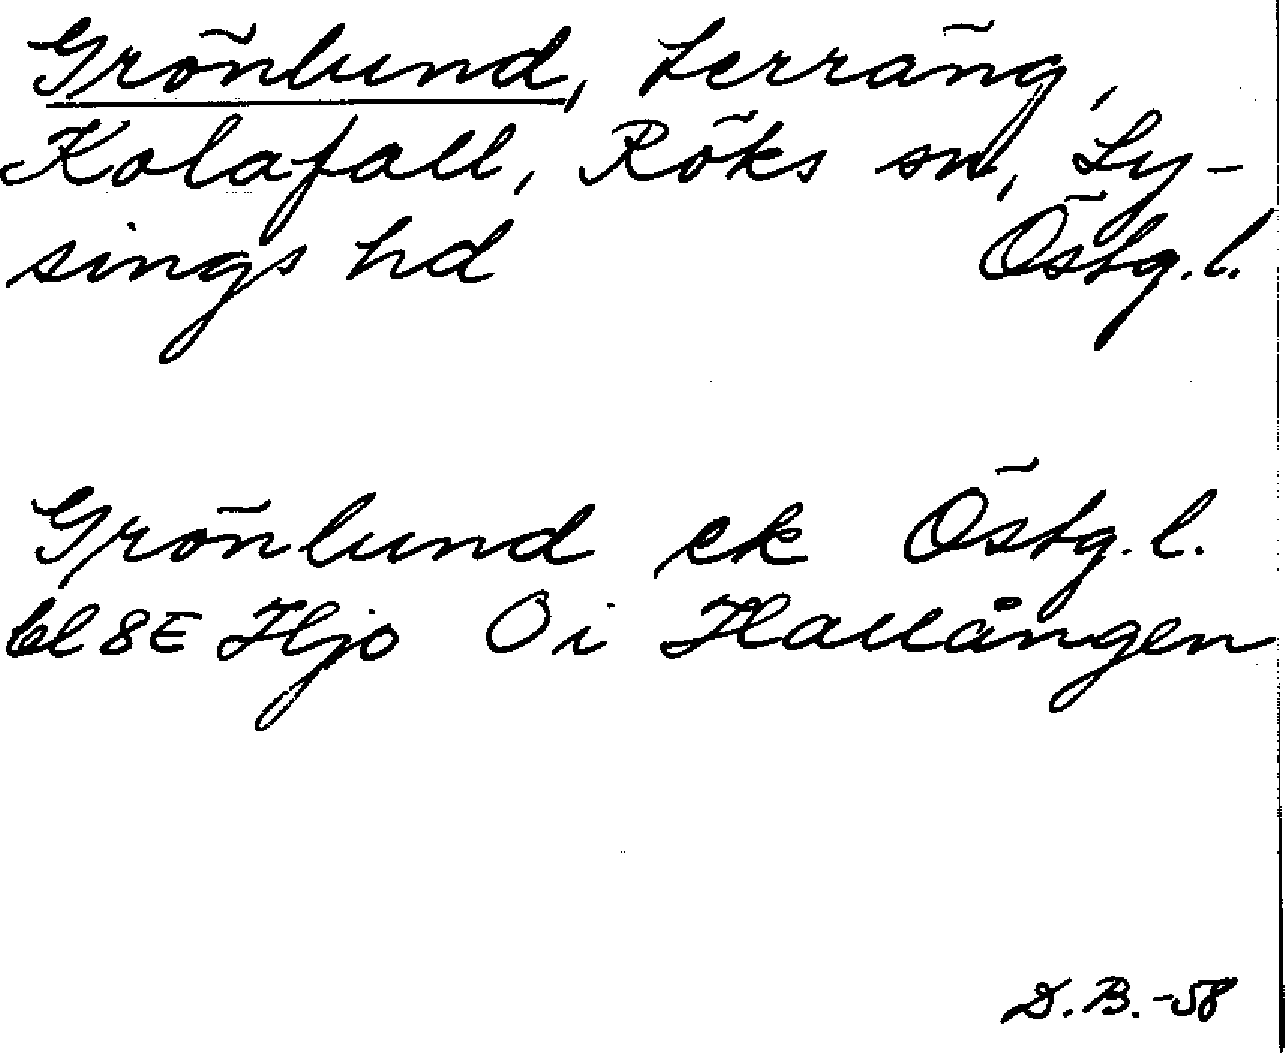 Grönlund, terräng,
Kolafall, Röks sn, Ly-
sings hd Östg.l.
Grönlund ek Östg.l.
bl 8E Hjo Oi Hallången
D.B.-58